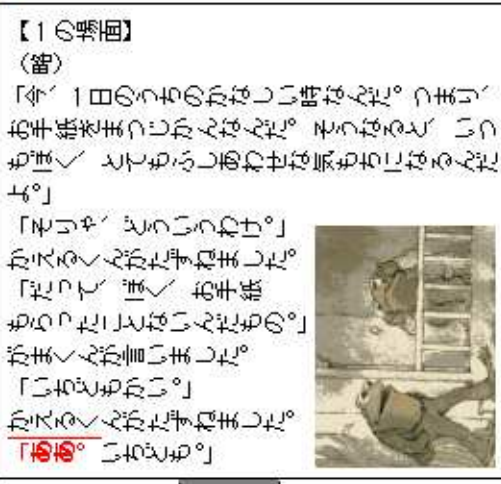 【1の場面】
（略）
「今、1日のうちのかなしい時なんだ。つまり、
お手紙をまつじかんなんだ。そうなると、いつ
もぼく、とてもふしあわせな気もちになるんだ
よ。」
「そりゃ、どういうわけ。」
かえるくんがたずねました。
「だって、ぼく、お手紙
もらったことないんだもの。」
がまくんが言いました。
「いちどもかい。」
かえるくんがたずねました。
「ああ。いちども。」